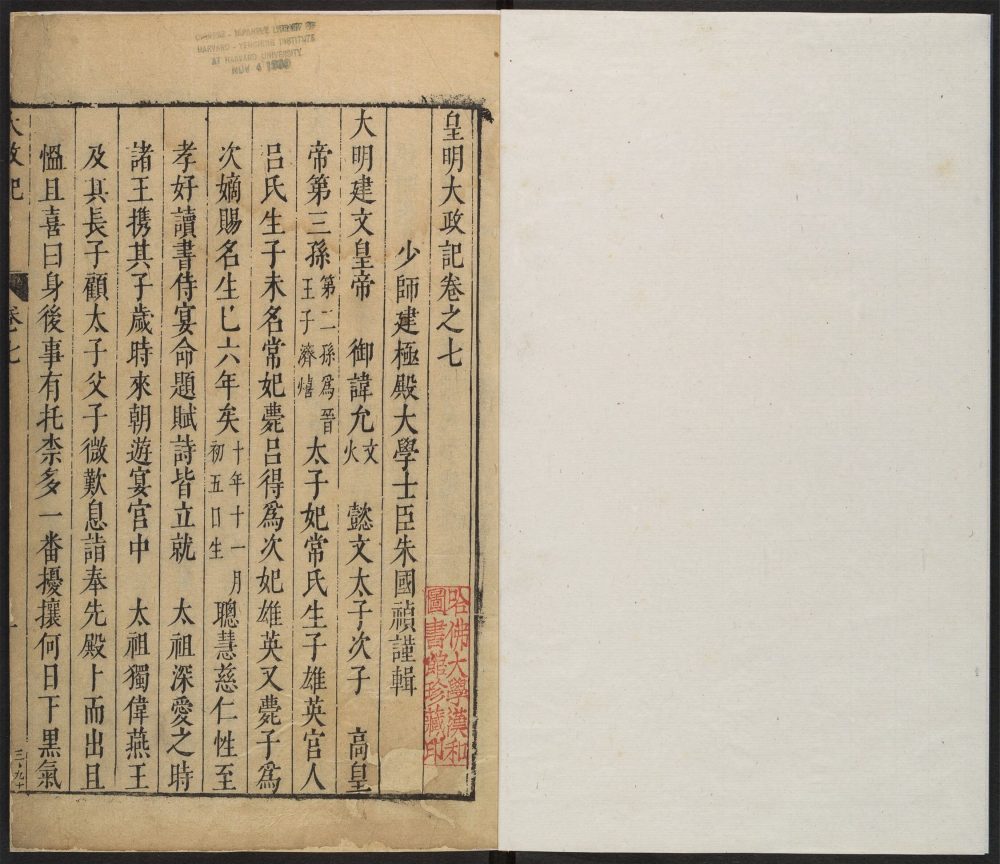 皇明大政記卷之七
少師建極殿大學士臣朱國禎謹輯
大明建文皇帝 御諱允文火 懿文太子次子 高皇
帝第三孫第二孫爲晉王子濟熺 太子妃常氏生子雄英宫人
呂氏生子未名常妃薨呂得爲次妃雄英又薨子爲
次嫡賜名生已六年矣十年十一月初五日生聰慧慈仁性至
孝好讀書侍宴命題賦詩皆立就 太祖深愛之時
諸王攜其子歲時來朝遊宴宫中 太祖獨偉燕王
及其長子顧太子父子微歎息詣奉先殿卜而出且
慍且喜曰身後事有托柰多一番擾攘何日下黑氣
大政記 卷七 一
哈佛大學漢和
圖書館珍藏印
CHINESE - JAPANESE LIBRARY OF
HARVARD - YENCHING INSTITUTE
AT HARVARD UNIVERSITY
NOV 4 1930